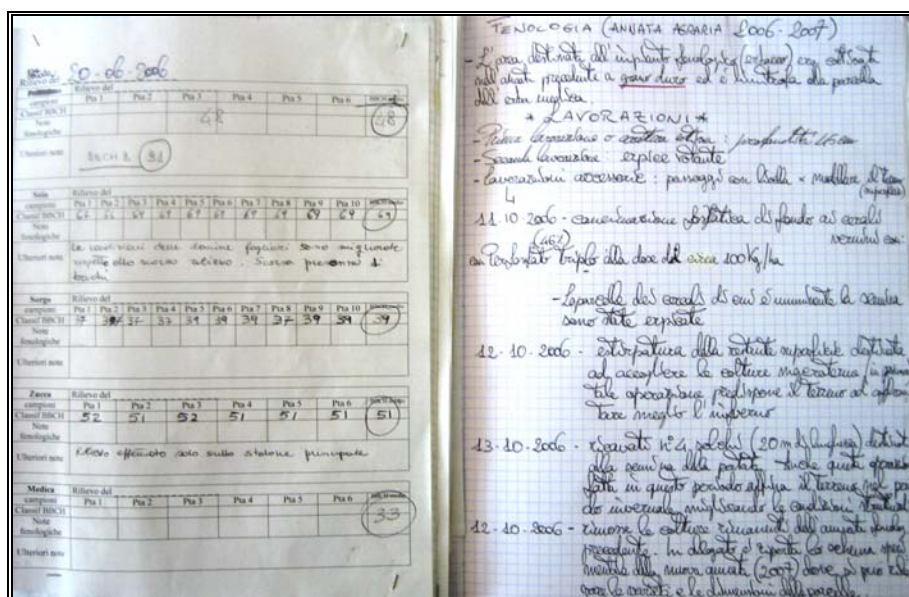 20-06-2006
Rilievo del
Pta 1 Pta 2 Pta 3 Pta 4 Pta 5 Pta 6
campioni
Classif BBCH 48 48
Note
fenologiche
Ulteriori note BBCH 2 31
Soia Rilievo del
campioni Pta 1 Pta 2 Pta 3 Pta 4 Pta 5 Pta 6 Pta 7 Pta 8 Pta 9 Pta 10
Classif BBCH 69 69 69 69 69 69 69 69
Note
fenologiche
Ulteriori note
delle lamine fogliari sono migliorate
rispetto allo scorso rilievo. Scarsa presenza di
Sorgo Rilievo del
campioni Pta 1 Pta 2 Pta 3 Pta 4 Pta 5 Pta 6 Pta 7 Pta 8 Pta 9 Pta 10
Classif BBCH 37 37 39 39 39 37 39 39 39
Note
fenologiche
Ulteriori note
Zucca Rilievo del
campioni Pta 1 Pta 2 Pta 3 Pta 4 Pta 5 Pta 6
Classif BBCH 52 51 52 51 51 51 51
Note
fenologiche
Ulteriori note Rilievo effettuato solo sullo stolone principale
Medica Rilievo del
campioni Pta 1 Pta 2 Pta 3 Pta 4 Pta 5 Pta 6
Classif BBCH 33
Note
fenologiche
Ulteriori note
FENOLOGIA (ANNATA AGRARIA 2006-2007)
- L'area destinata all'impianto fenologico (erbacee) era coltivata
nell'annata precedente a grano duro ed è limitrofa alla parcella
dell'erba medica
* LAVORAZIONI *
- Prima lavorazione : profondità 45 cm
- Seconda lavorazione : erpice rotante
- Lavorazioni accessorie : passaggi con
11.10.2006 - concimazione fosfatica di fondo ai cereali
vernini con:
(46%)
con Perfosfato triplo alla dose di circa 100 Kg/ha
- Le parcelle dei cereali di cui è imminente la semina
sono state erpicate
12.10.2006 - estirpatura della restante superficie destinata
ad accogliere le colture
tale operazione predispone il terreno ad affron
tare meglio l'inverno
13.10.2006 - ricavati n°4 solchi (20 m di lunghezza) destinati
alla semina della patata. Anche questa operazione
fatta in questo periodo affina il terreno nel perio
do invernale, migliorando le condizioni strutturali
12.10.2006 - rimosse le colture rimanenti dell'annata
precedente. In allegato è riportato lo schema speri
mentale della nuova annata (2007) dove si può rile
vare la varietà e le dimensioni delle parcelle